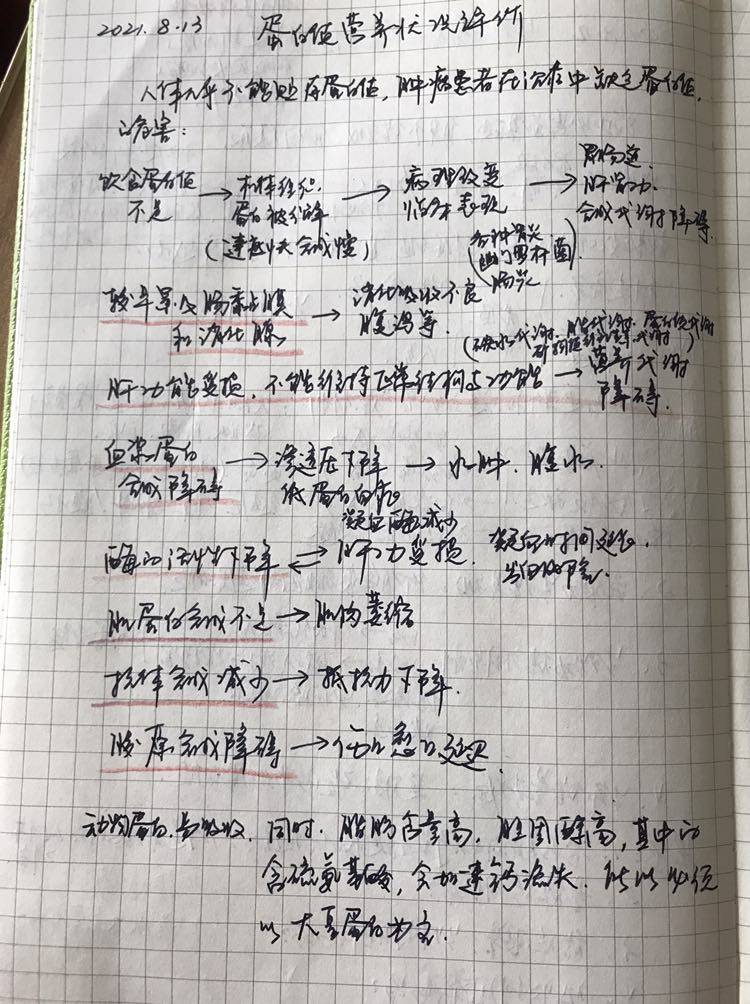 2021.8.13 蛋白值营养状况评价
人体几乎不能贮存蛋白值,肿病患者在治疗中缺乏蛋白值,
的危害:
饮食蛋白值不足 → 机体组织蛋白被分解 (速度快 合成慢) → 病理改变 临床表现 → 胃肠道. 肝肾功. 合成代谢障碍.
(各种胃炎 幽门罗杆菌 肠炎)
较早累及肠黏膜和消化腺 → 消化吸收不良 腹泻等.
肝功能受损, 不能维持正常结构与功能 → 营养代谢障碍.
血浆蛋白合成障碍 → 渗透压下降 低蛋白血症 → 水肿. 腹水.
酶的活性下降 ⇌ 肝功受损. 凝血酶减少 凝血时间延长.
肌蛋白合成不足 → 肌肉萎缩
抗体合成减少 → 抵抗力下降.
胶原合成障碍 → 伤口愈合延迟.
动物蛋白.易吸收. 同时. 脂肪含量高, 胆固醇高, 其中的
含硫氨基酸, 会加速钙流失. 所以必须
以大豆蛋白为主.